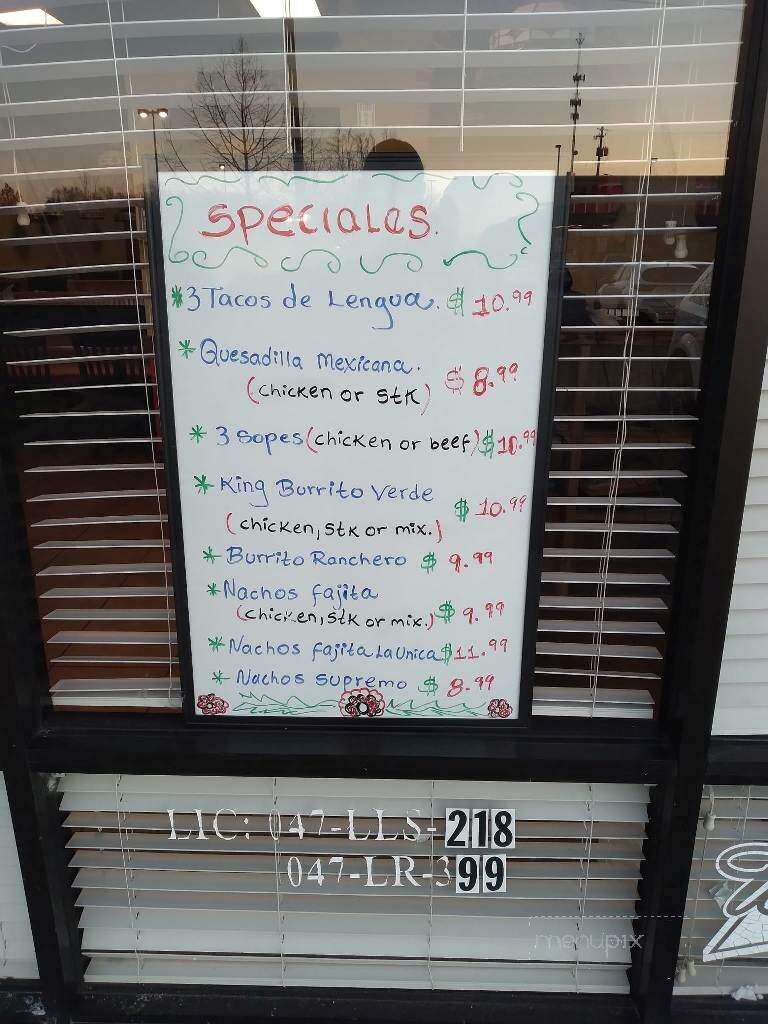 Speciales.
*3 Tacos de Lengua. $ 10.99
* Quesadilla Mexicana. $ 8.99
(chicken or stk)
* 3 sopes (chicken or beef) $10.99
* King Burrito Verde $ 10.99
(chicken, stk or mix.)
* Burrito Ranchero $ 9.99
* Nachos fajita $ 9.99
(chicken, stk or mix.)
* Nachos fajita La Unica $11.99
* Nachos supremo $ 8.99
LIC: 047-LLS-218
047-LR-399
menupix